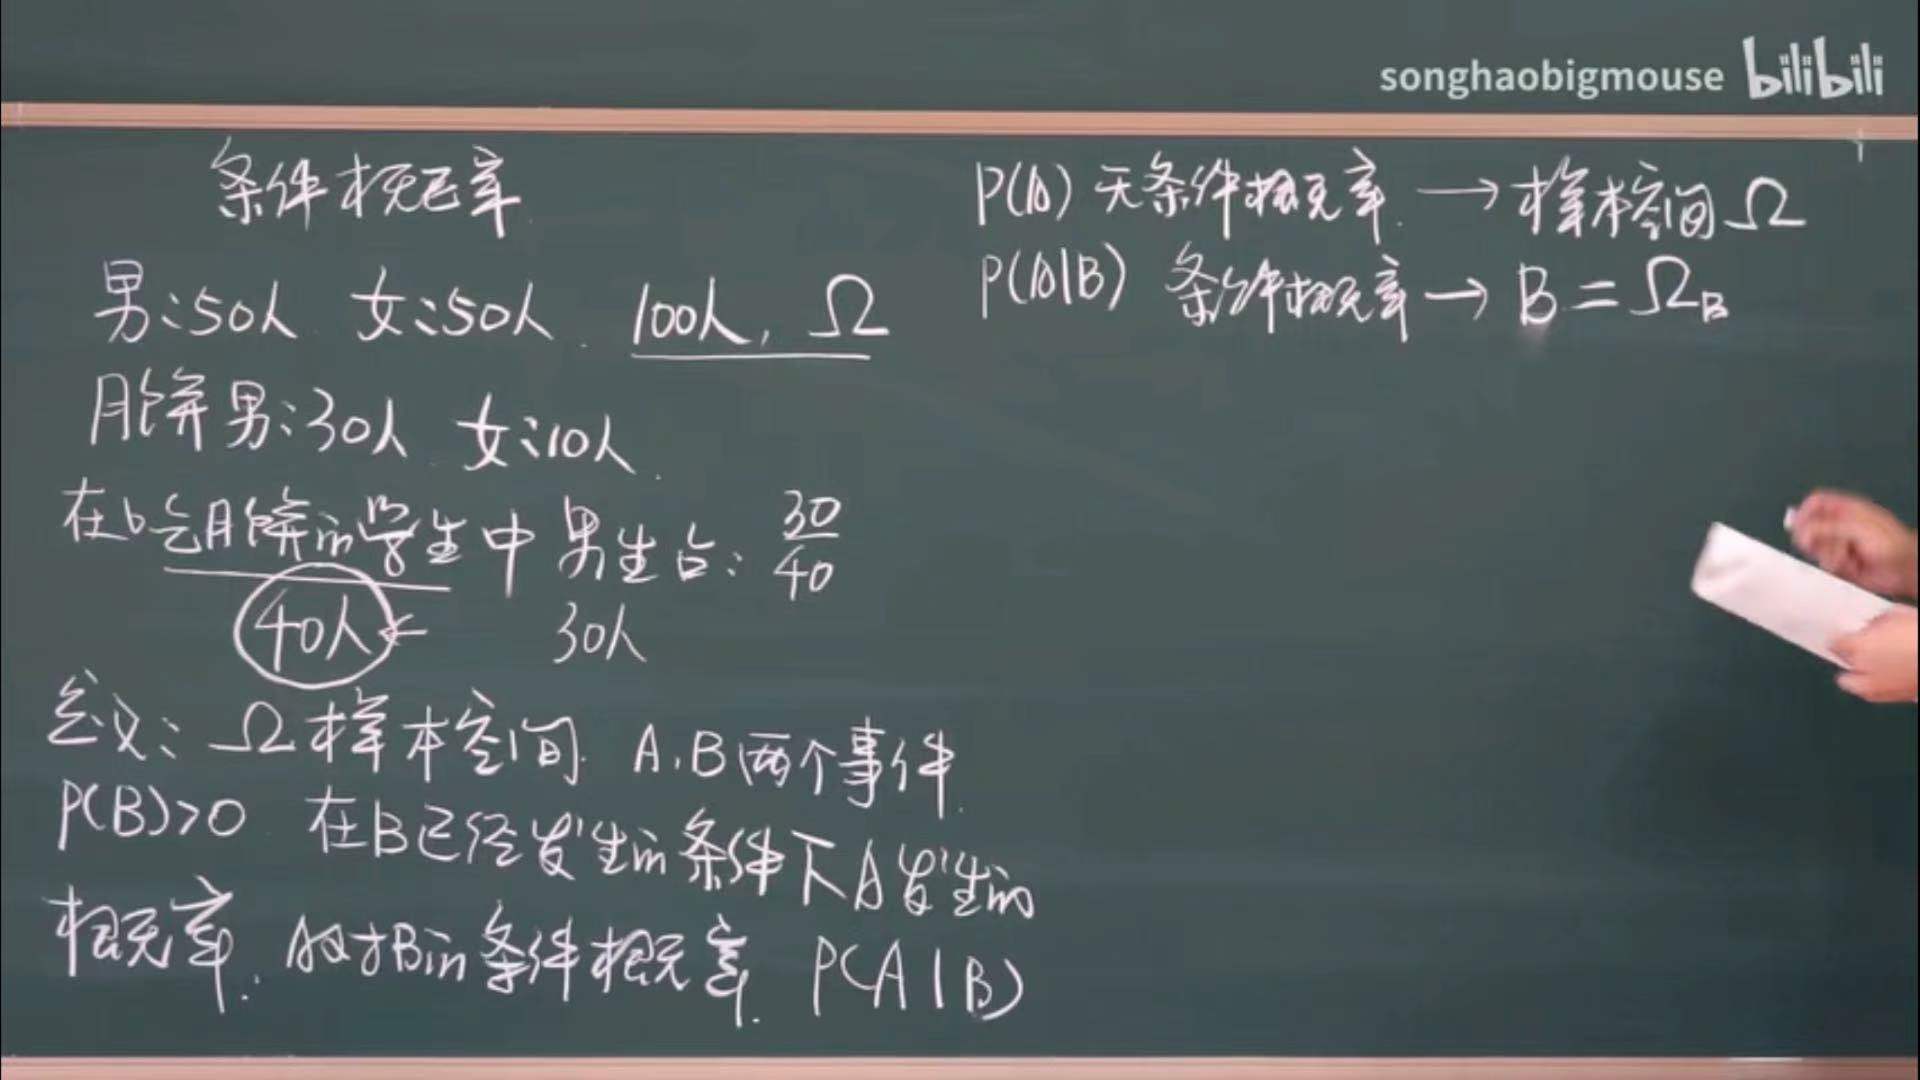 songhaobigmouse bilibili
条件概率
男:50人 女:50人. 100人, Ω
月饼男:30人 女:10人.
在吃月饼的学生中 男生占: 30/40
40人 ← 30人
定义: Ω样本空间. A,B两个事件.
P(B)>0 在B已经发生的条件下A发生的
概率. A对B的条件概率. P(A|B)
P(A) 无条件概率. → 样本空间Ω
P(A|B) 条件概率 → B = Ω_B